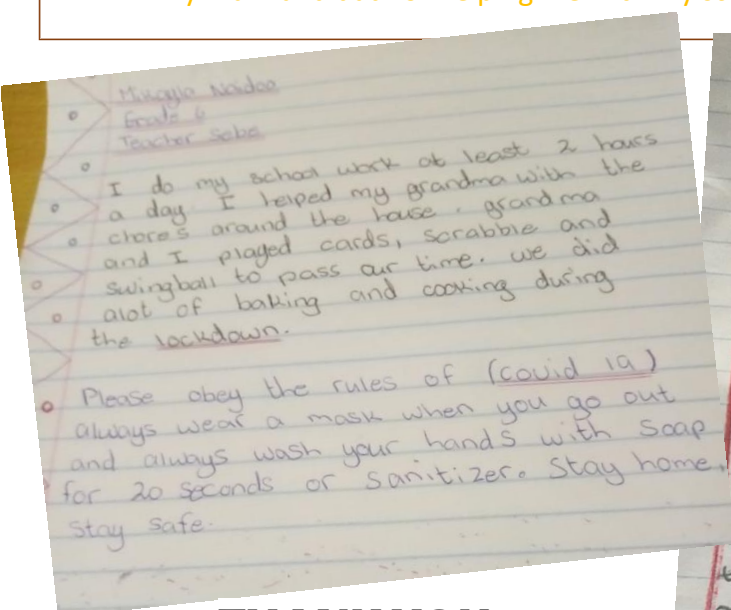 Mikayla Naidoo
Grade 6
Teacher Sebe
I do my school work at least 2 hours
a day I helped my grandma with the
chores around the house. grandma
and I played cards, scrabble and
swingball to pass our time. we did
alot of baking and cooking during
the lockdown.
Please obey the rules of (covid 19)
always wear a mask when you go out
and always wash your hands with soap
for 20 seconds or sanitizer. Stay home.
Stay safe.